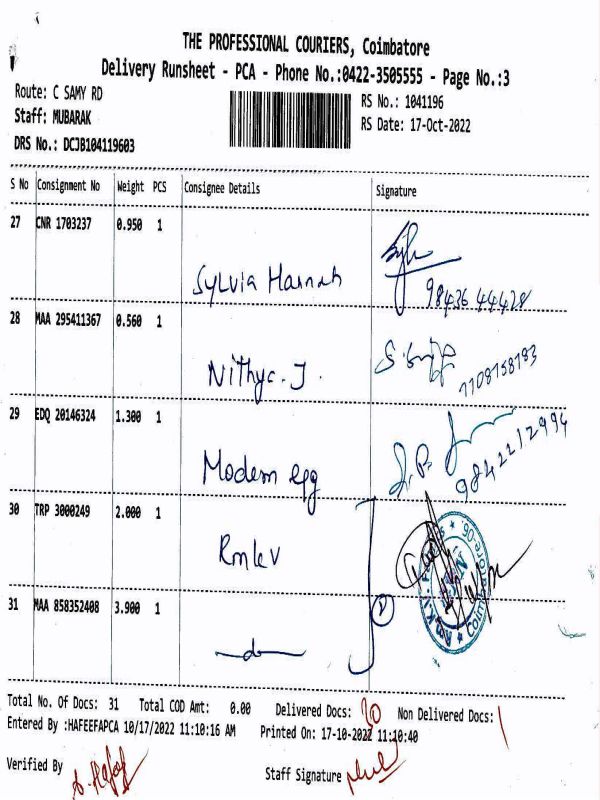 THE PROFESSIONAL COURIERS, Coimbatore
Delivery Runsheet - PCA - Phone No.:0422-3505555 - Page No.:3
Route: C SAMY RD
RS No.: 1041196
Staff: MUBARAK
RS Date: 17-Oct-2022
DRS No.: DCJB104119603
S No Consignment No Weight PCS Consignee Details Signature
27 CNR 1703237 0.950 1
Sylvia Hannah
98436 44428
28 MAA 295411367 0.560 1
Nithya. J.
7708158183
29 EDQ 20146324 1.300 1
Modern epg
9842212994
30 TRP 3000249 2.000 1
Rmkv
31 MAA 858352408 3.900 1
Total No. Of Docs: 31 Total COD Amt: 0.00 Delivered Docs: 30 Non Delivered Docs: 1
Entered By :HAFEEFAPCA 10/17/2022 11:10:16 AM Printed On: 17-10-2022 11:10:40
Verified By
Staff Signature